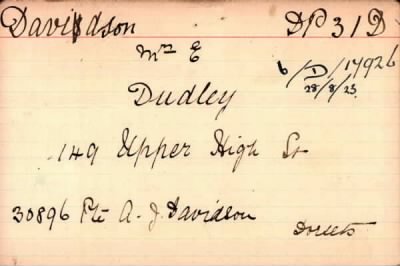 Davidson DP 31 D
Mrs E 6/D/17926
28/8/23
Dudley
149 Upper High St
30896 Pte A. J. Davidson Dorsets